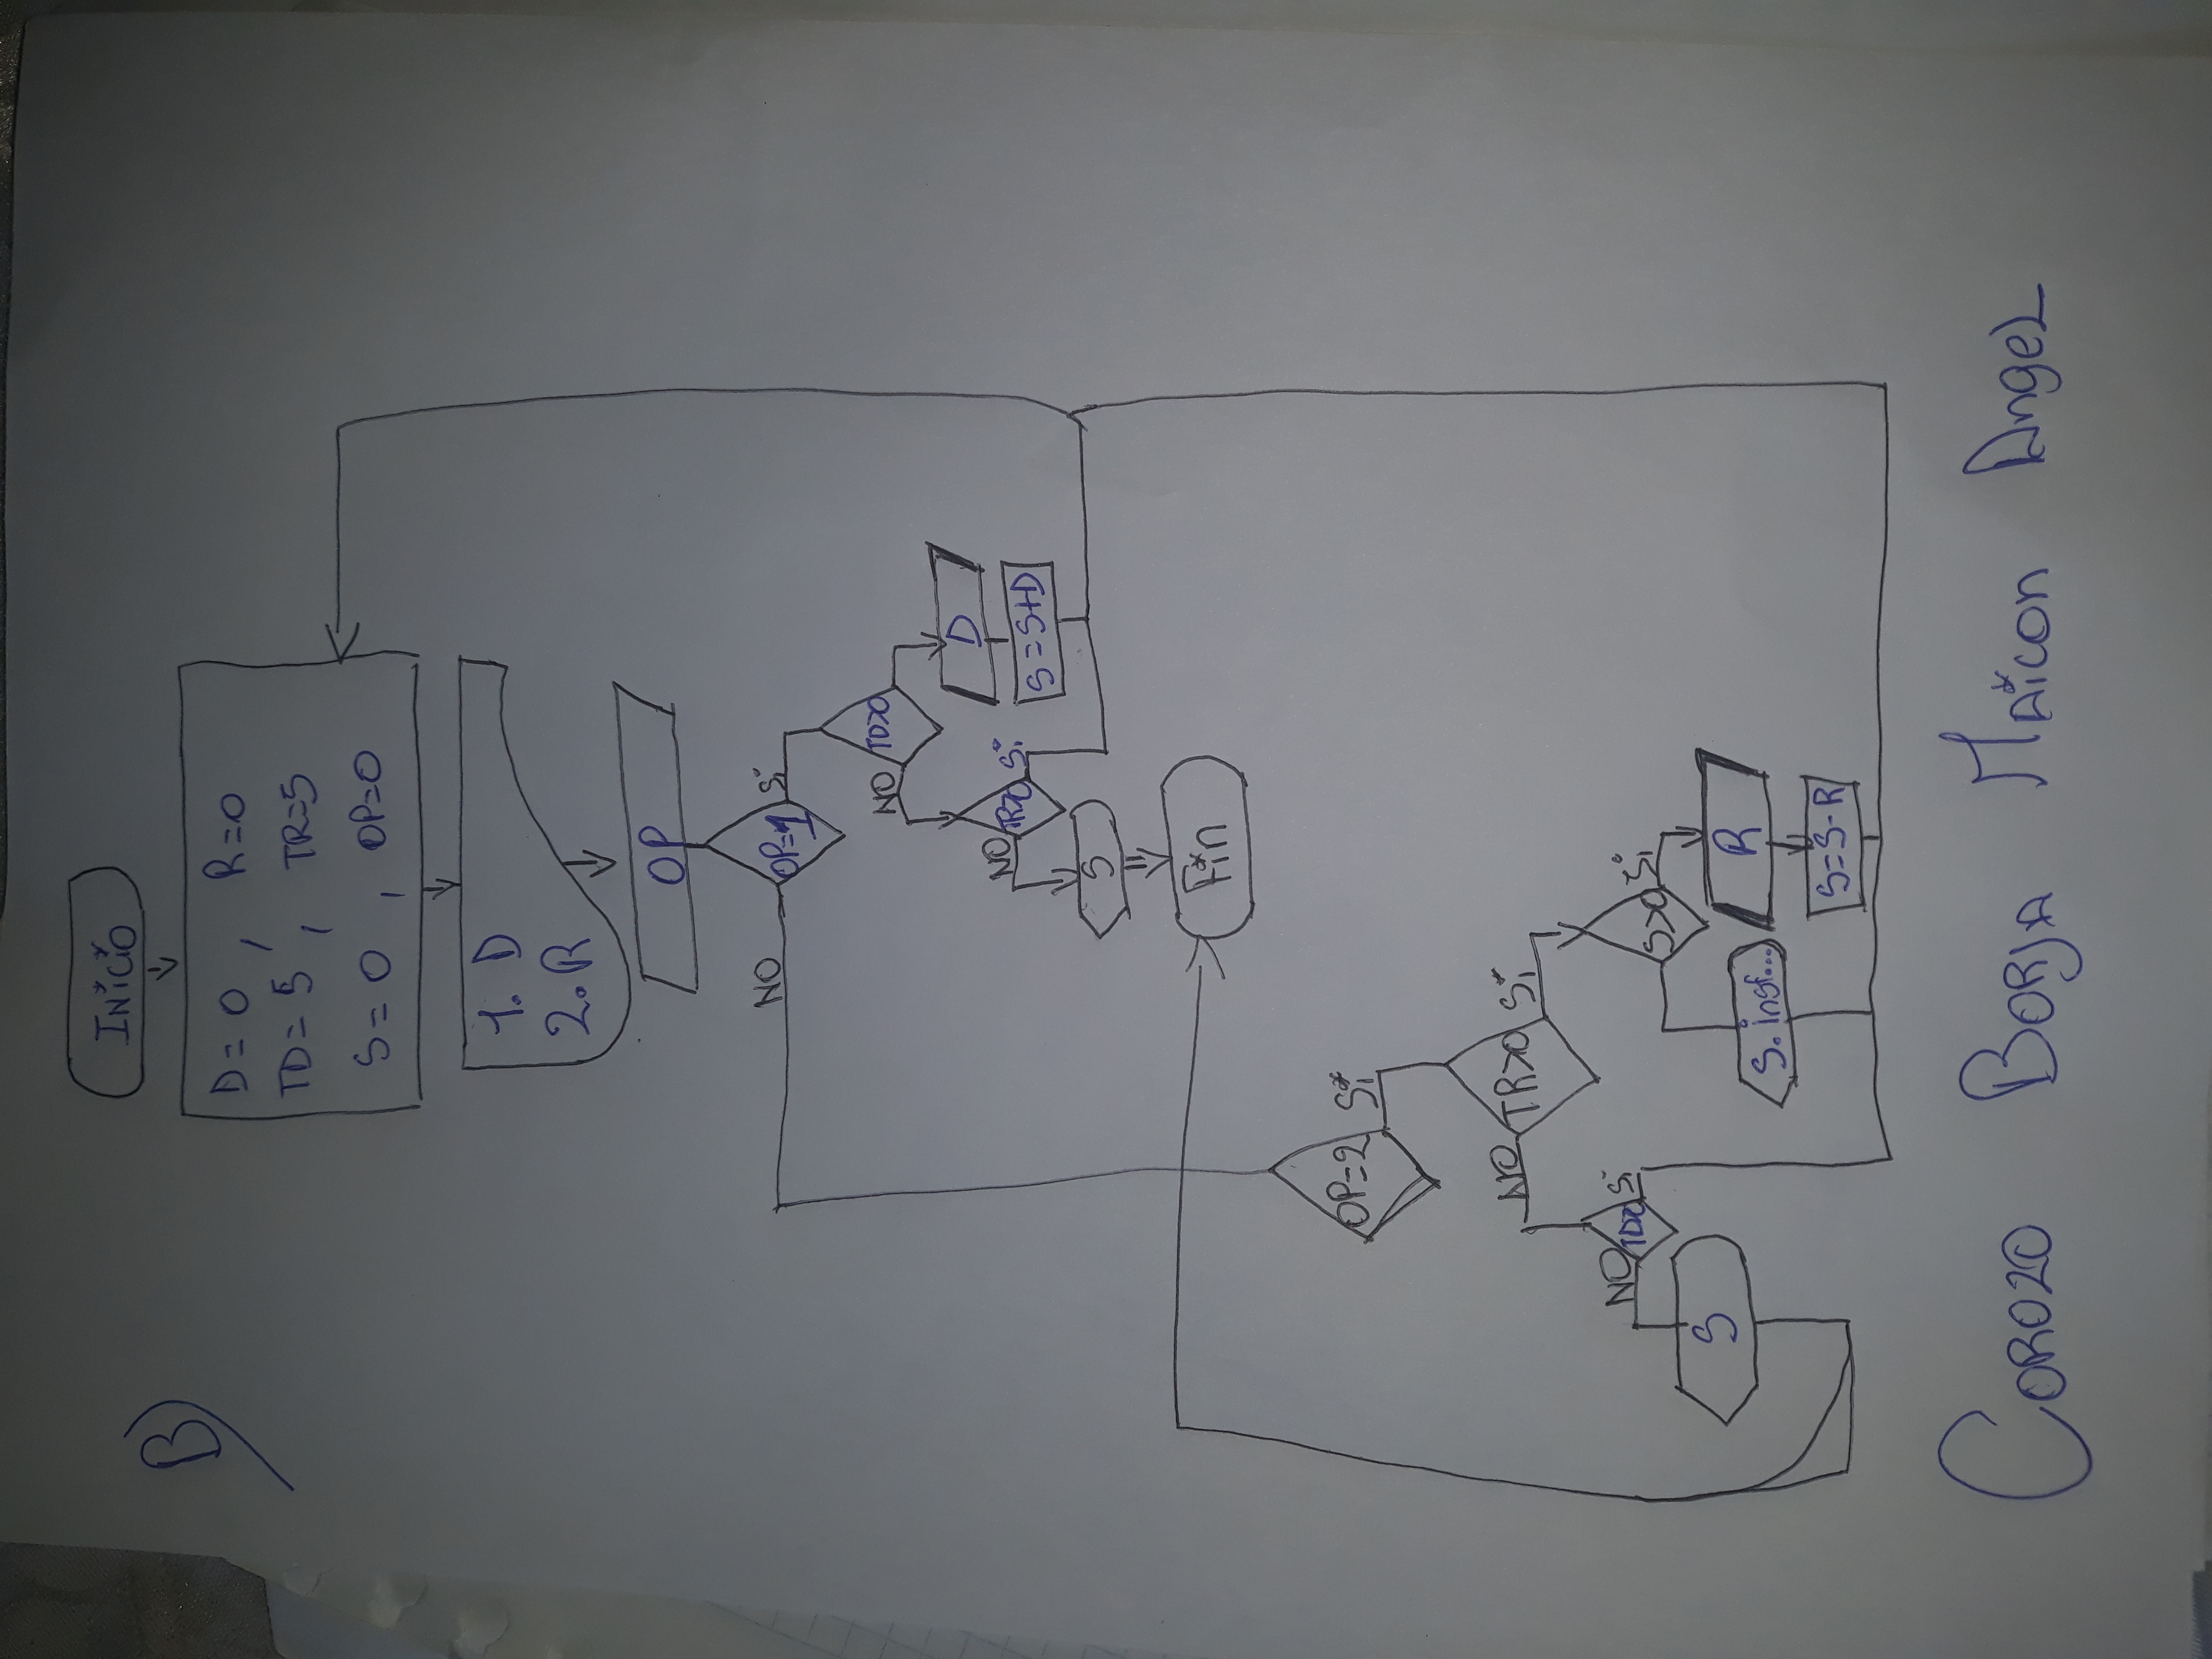 B)
INiCiO
D = 0 , R = 0
TD = 5 , TR = 5
S = 0 , OP = 0
1. D
2. R
OP
NO OP=1 Si
NO TD>0
D
NO TR>0 Si
S = S+D
S
Fin
OP=2 Si
NO TR>0 Si
NO TD>0 Si
S>0 Si
S
R
S. insf...
S=S-R
COROZO BORJA MAiCON ANgEL